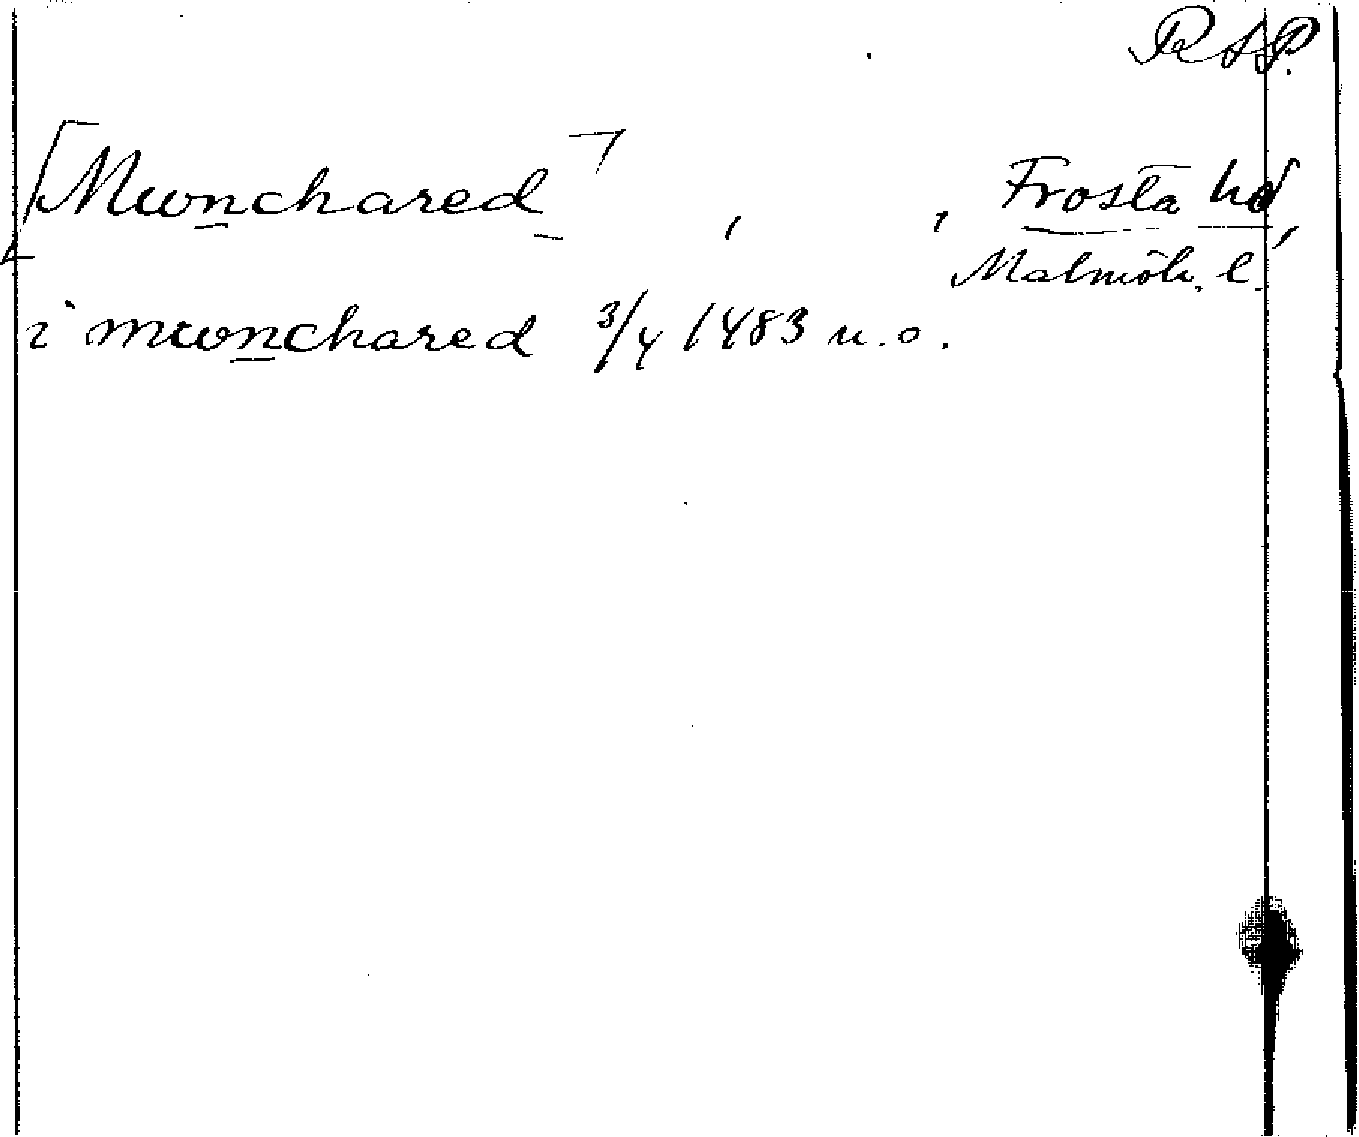 RAP.
[Mwnchared] , , Frosta hd,
Malmöh. l.
i mwnchared 3/4 1483 u.o.